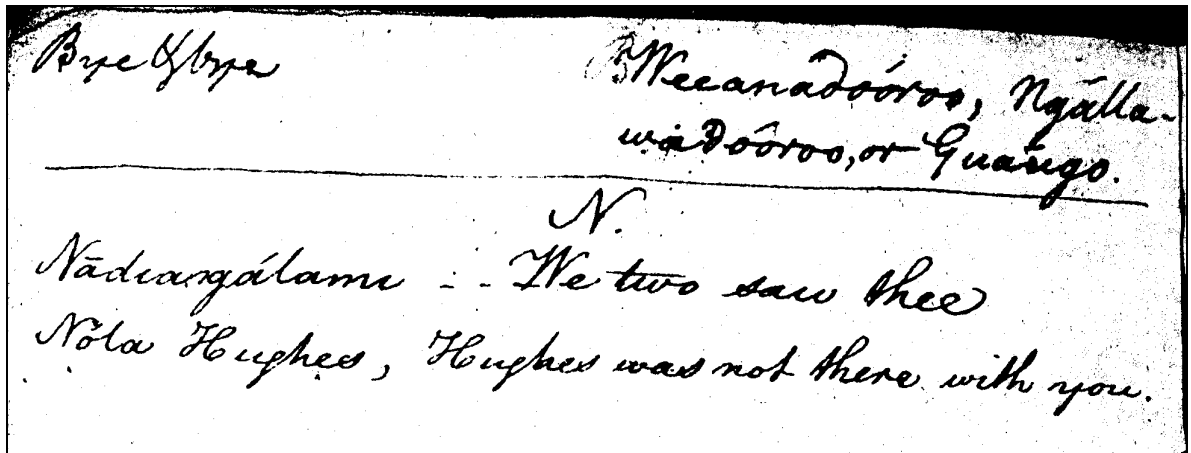 Bye & bye Weeanadoóroo, Ngálla-
wadoóroo, or Guāugo.
N.
Nādiangálami - - We two saw thee
Nōla Hughes, Hughes was not there with you.